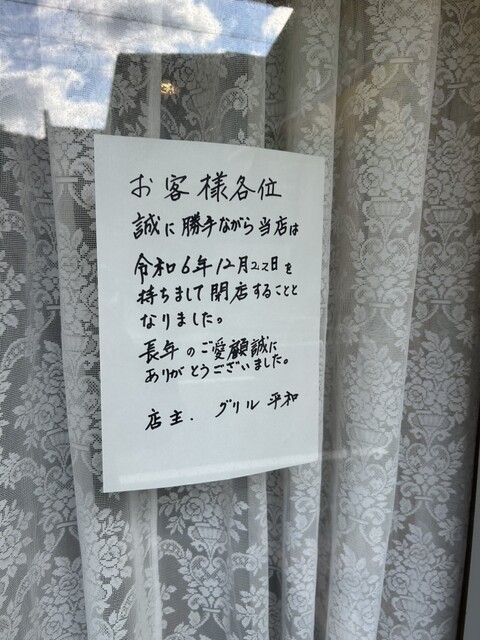 お客様各位
誠に勝手ながら当店は
令和6年12月22日を
持ちまして閉店することと
なりました。
長年のご愛顧誠に
ありがとうございました。
店主. グリル平和